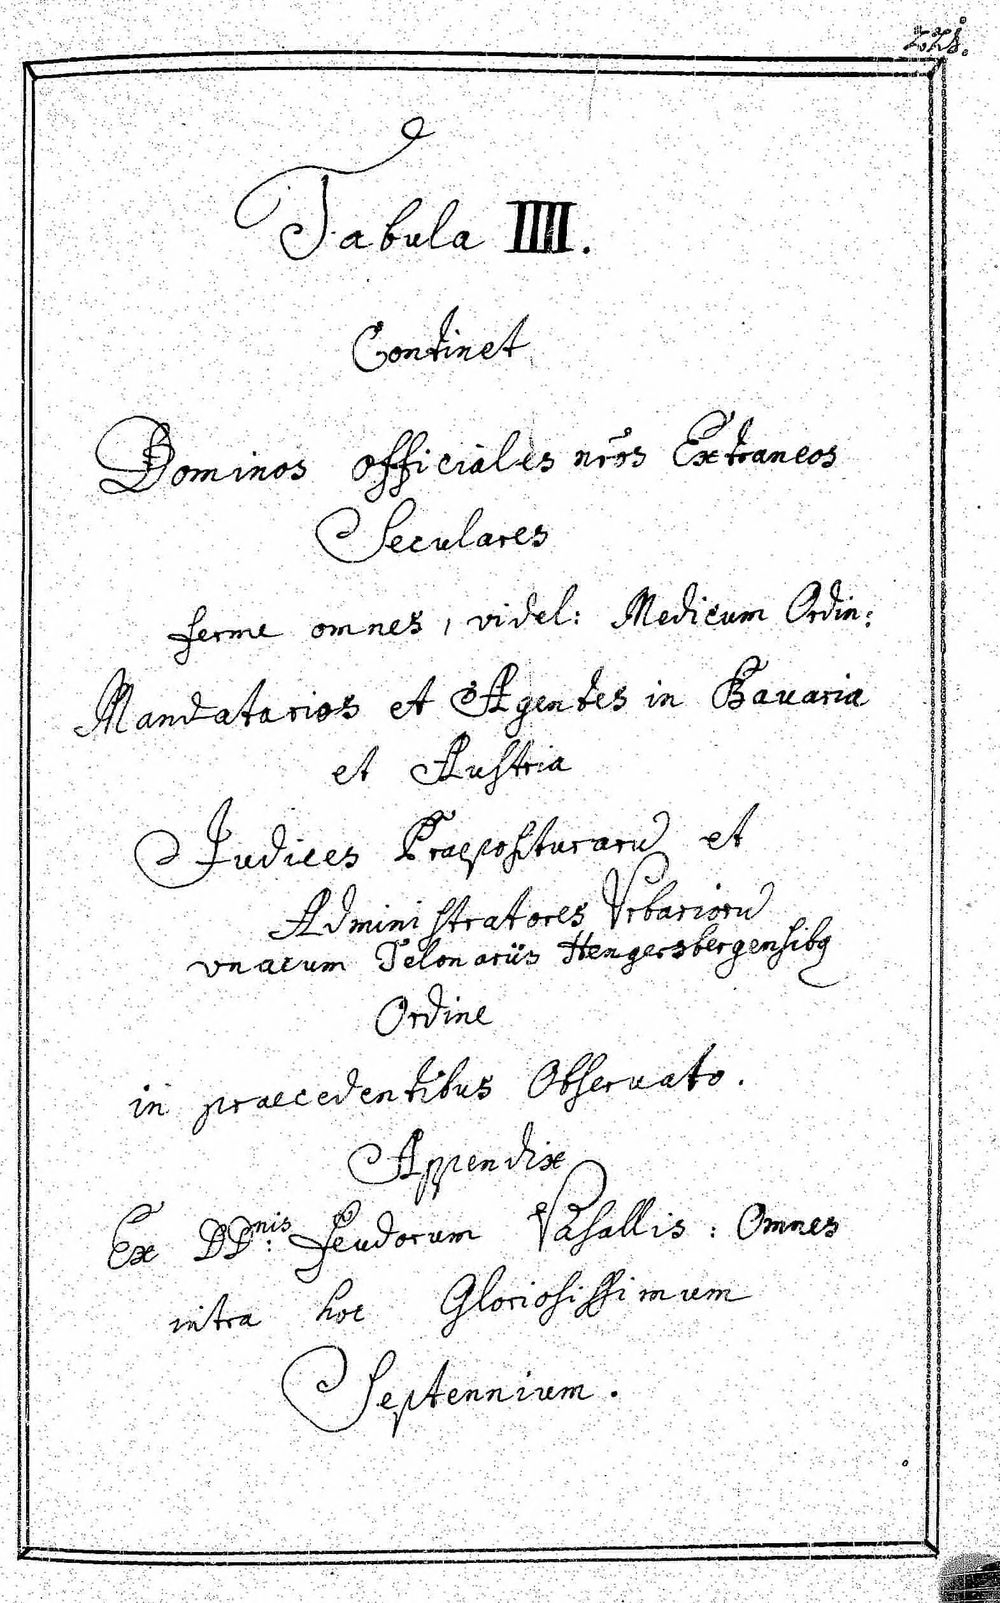 221.
Tabula IIII.
Continet
Dominos officiales nrōs Extraneos
Seculares
ferme omnes, videl: Medicum Ordin:
Mandatarios et Agentes in Bauaria
et Austria
Judices Praepositurarū et
Administratores Vrbariorū
vnacum Telonariis Hengersbergensibq
Ordine
in praecedentibus Obseruato.
Appendix
Ex DDnis: Feudorum Vasallis: Omnes
intra hoc Gloriosissimum
Septennium.